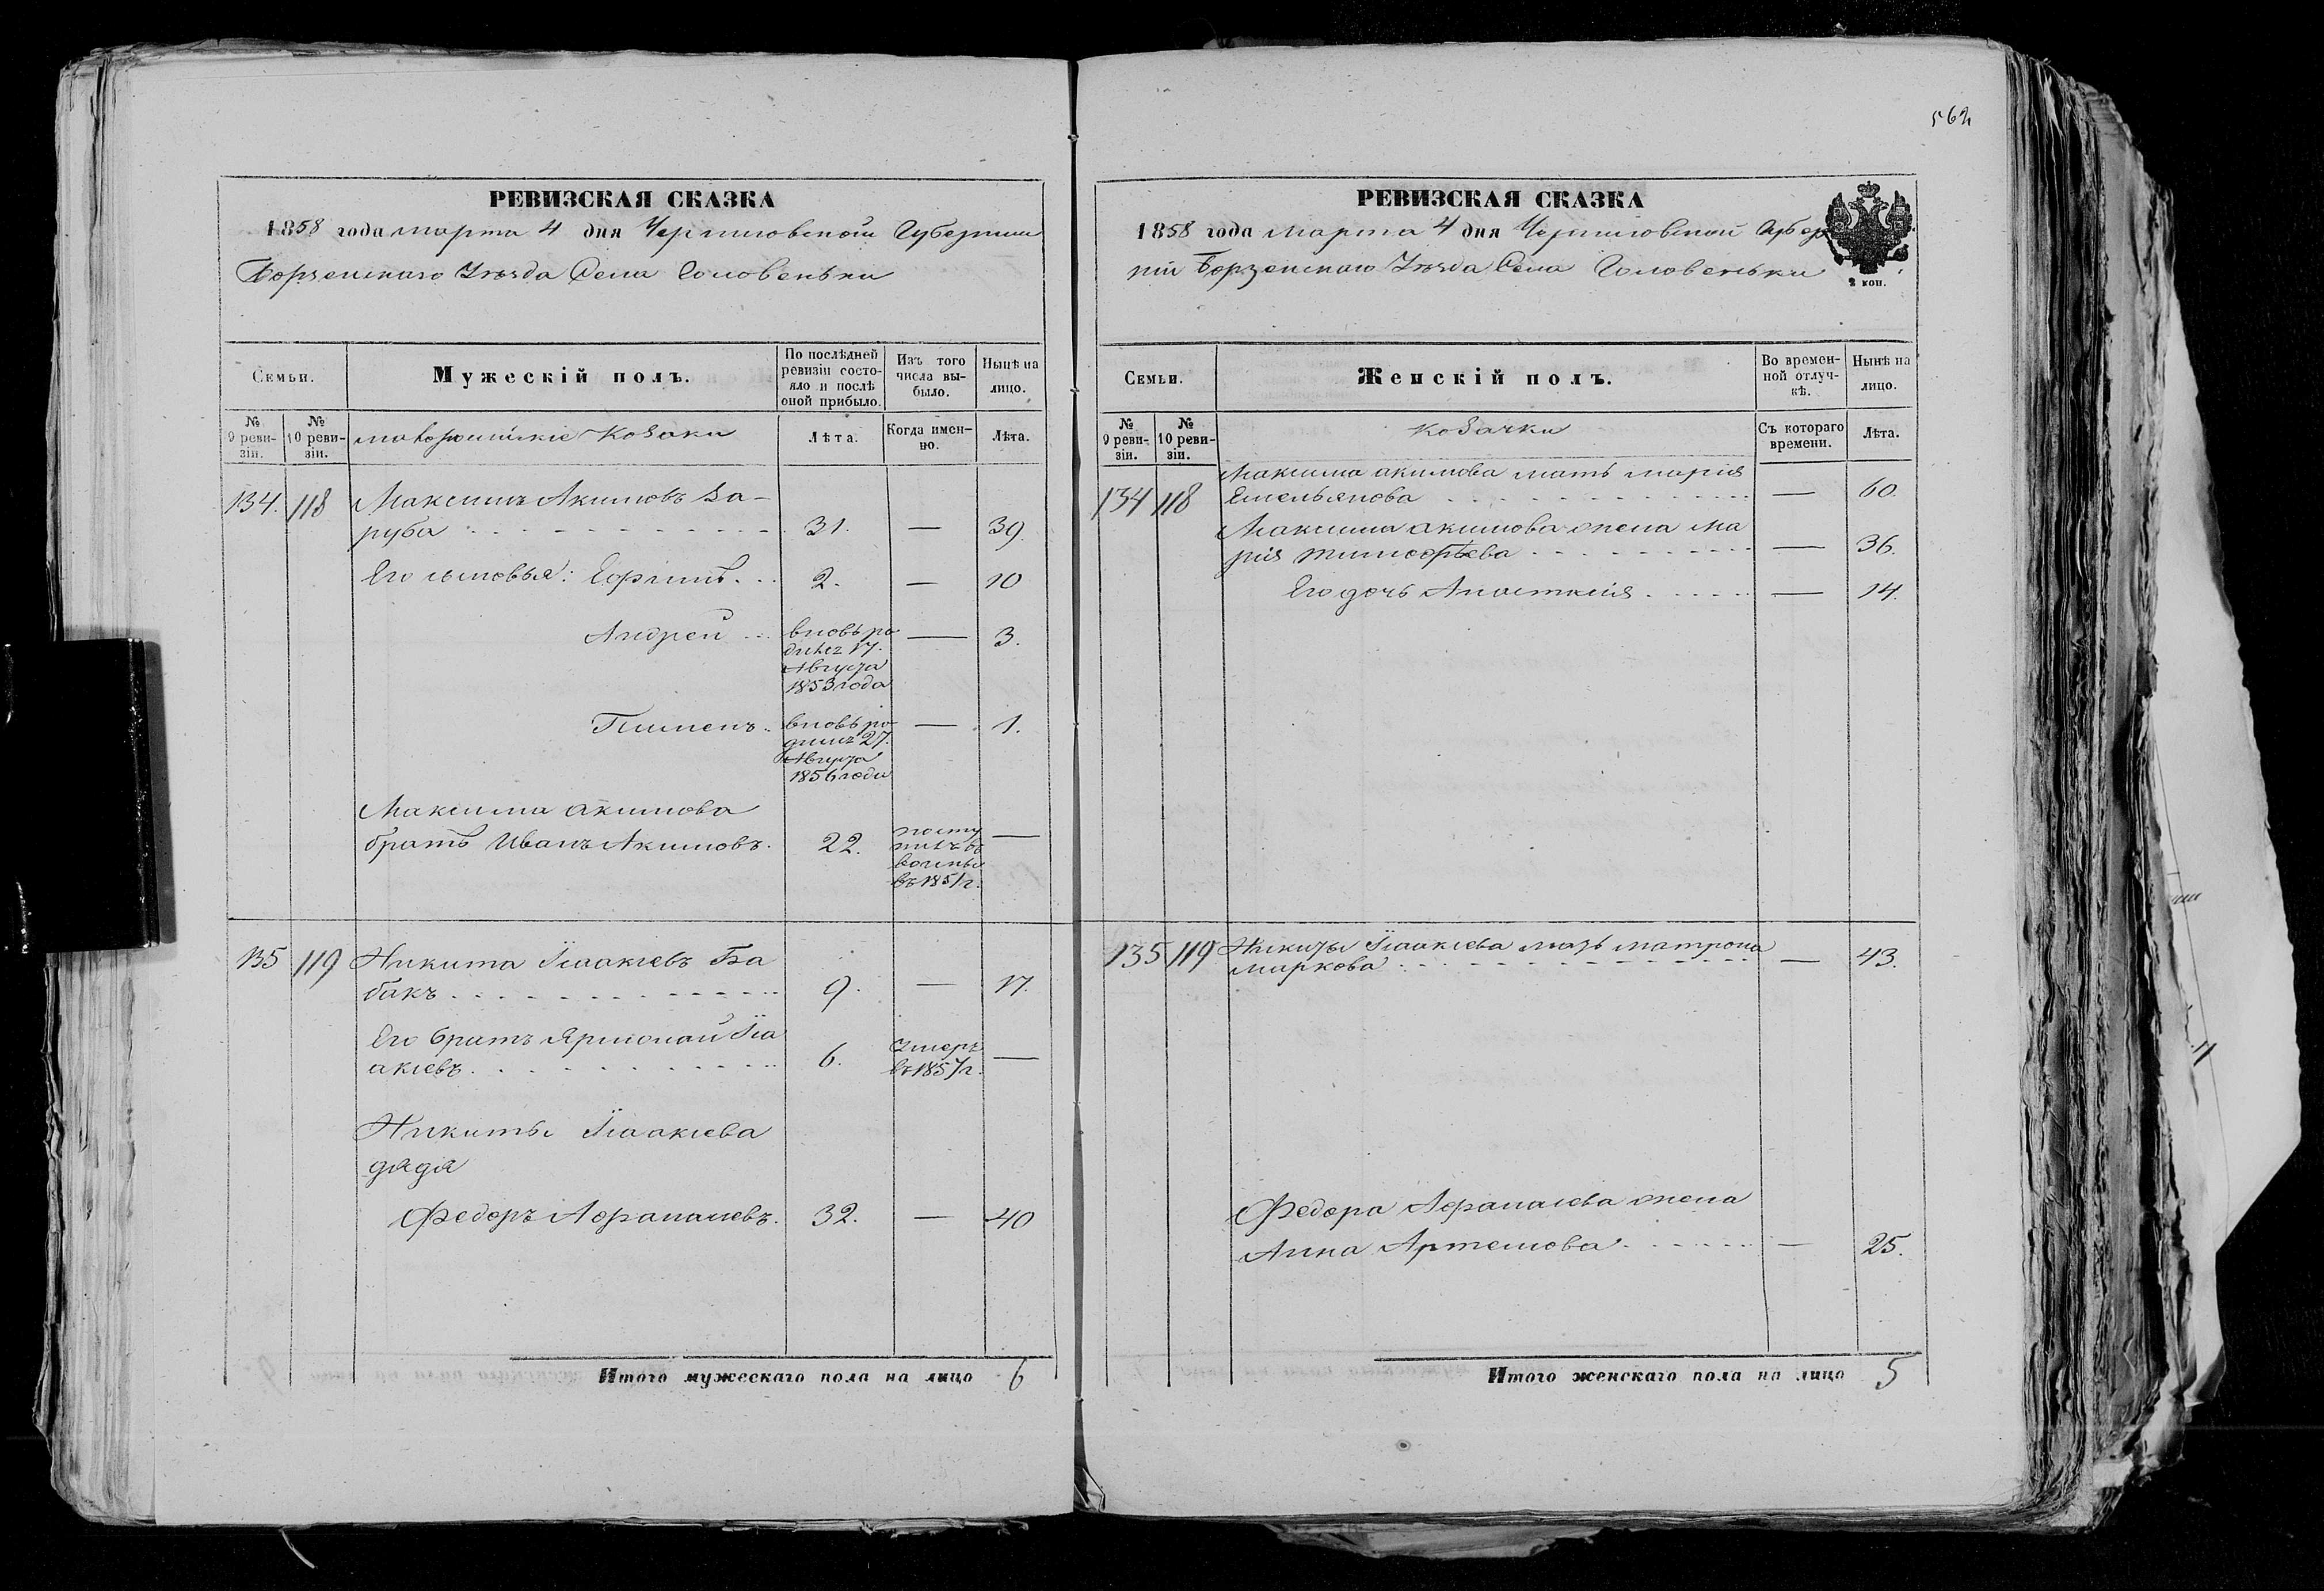 562
РЕВИЗСКАЯ СКАЗКА
1858 года марта 4 дня Черниговской Губернии
Борзенскаго Уѣзда Села Головеньки
Семьи.
Мужескій полъ.
По послѣдней ревизіи состояло и послѣ оной прибыло.
Изъ того числа выбыло.
Нынѣ на лицо.
№ 9 ревизіи.
№ 10 ревизіи.
малороссійскіе козаки
Лѣта.
Когда именно.
Лѣта.
134. 118 Максимъ Акимовъ За-
руба 31. — 39.
Его сыновья: Ефимъ 2. — 10
Андрей вновь ро — 3.
дился 17.
Августа
1853 года
Пименъ вновь ро — 1.
дился 27.
Августа
1856 года
Максима Акимова
братъ Иванъ Акимовъ. 22. посту —
пилъ въ
воины
въ 1851 г.
135 119 Никита Исаакіевъ Ба
бакъ 9. — 17.
Его братъ Ярмолай Иса
акіевъ 6. Умеръ —
въ 1857 г.
Никиты Исаакіева
дядя
Федоръ Афанасіевъ. 32. — 40
Итого мужескаго пола на лицо 6
РЕВИЗСКАЯ СКАЗКА
1858 года марта 4 дня Черниговской Губер
ніи Борзенскаго Уѣзда Села Головеньки
2 коп.
Семьи.
Женскій полъ.
Во временной отлучкѣ.
Нынѣ на лицо.
№ 9 ревизіи.
№ 10 ревизіи.
козачки
Съ котораго времени.
Лѣта.
Максима Акимова мать Марія
134 118 Емельянова — 60.
Максима Акимова жена Ма
рія Тимофѣева — 36.
Его дочь Анастасія — 14.
135 119 Никиты Исаакіева мать Матрона
Маркова — 43.
Федора Афанасіева жена
Анна Артемова — 25.
Итого женскаго пола на лицо 5